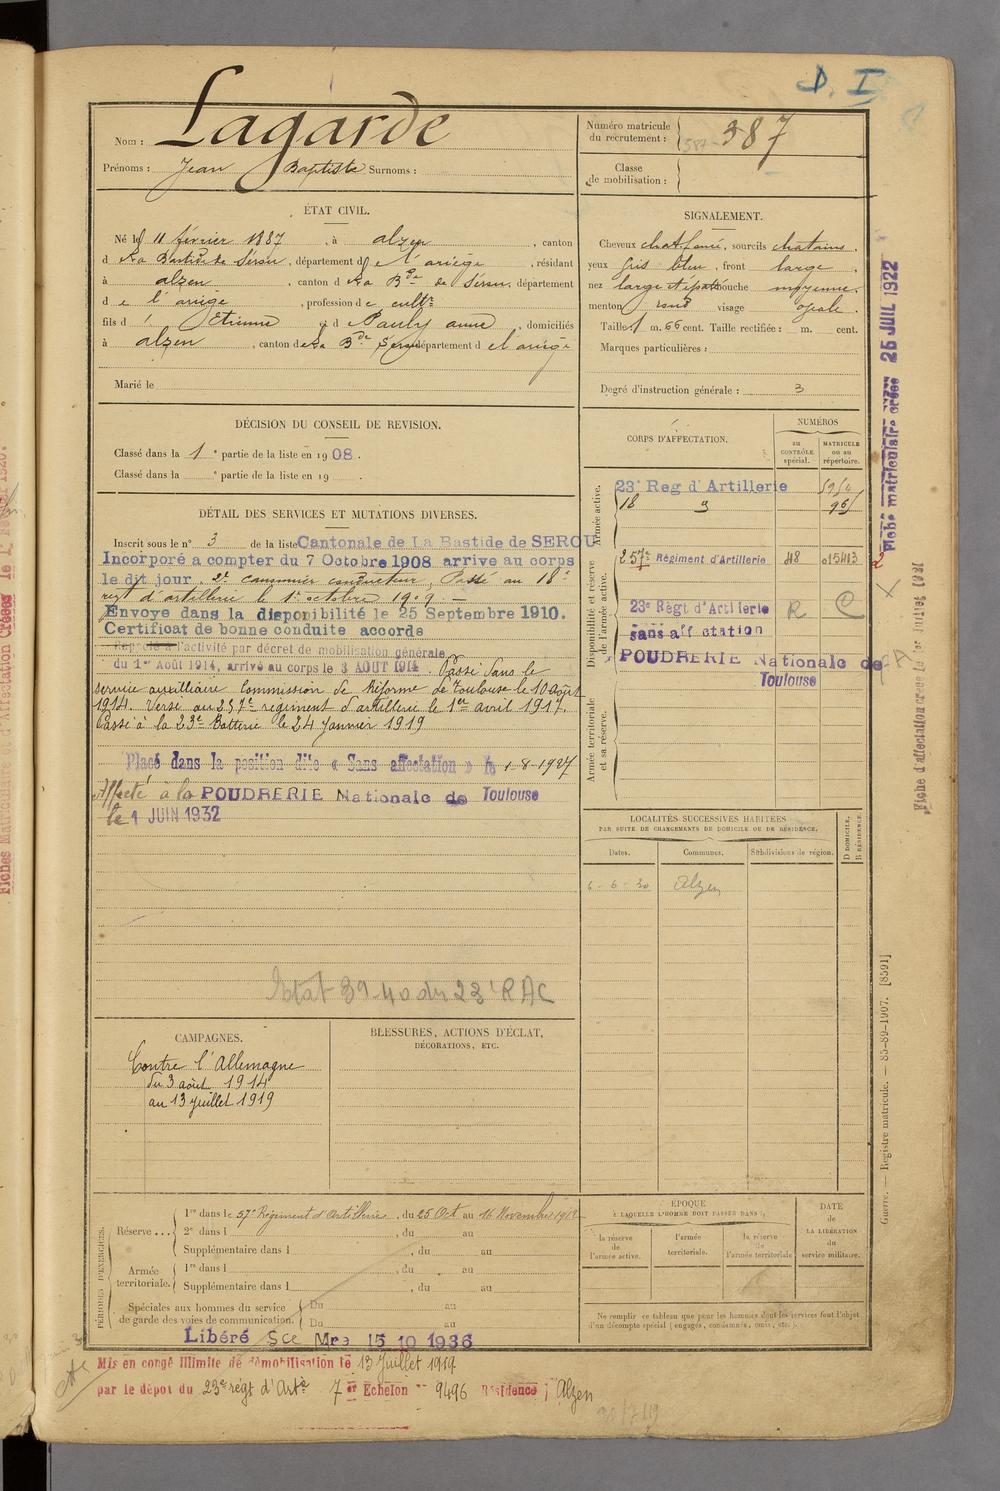 D. I
Nom : Lagarde
Prénoms : Jean Baptiste Surnoms :
Numéro matricule du recrutement : 387
Classe de mobilisation :
ÉTAT CIVIL.
Né le 11 février 1887, à alzen, canton
d La Bastide de Sérou, département de l'ariège, résidant
à alzen, canton d La Bde de Sérou, département
d e l'ariège, profession de cultr
fils d' Etienne et d Pauly anne, domiciliés
à alzen, canton de La Bde Serou département d e l'ariège
Marié le
SIGNALEMENT.
Cheveux chat foncé, sourcils chatains.
yeux gris bleu, front large.
nez large bouche moyenne.
menton rond visage ovale.
Taille 1 m. 66 cent. Taille rectifiée : m. cent.
Marques particulières :
Degré d'instruction générale : 3
DÉCISION DU CONSEIL DE REVISION.
Classé dans la 1e partie de la liste en 1908.
Classé dans la e partie de la liste en 19 .
DÉTAIL DES SERVICES ET MUTATIONS DIVERSES.
Inscrit sous le no 3 de la liste Cantonale de La Bastide de SEROU
Incorporé a compter du 7 Octobre 1908 arrive au corps
le dit jour. 2e canonnier conducteur, Passé au 18e
regt d'artillerie le 1er octobre 1909. —
Envoye dans la disponibilité le 25 Septembre 1910.
Certificat de bonne conduite accorde
Rappelé à l'activité par décret de mobilisation générale
du 1er Août 1914, arrivé au corps le 3 AOUT 1914. Passé dans le
service auxilliaire Commission de Réforme de Toulouse le 10 août
1914. Versé au 257e régiment d'artillerie le 1er avril 1917.
Passé à la 23e Batterie le 24 Janvier 1919
Placé dans la position dite « Sans affectation » le 1-8-1927
Affecté à la POUDRERIE Nationale de Toulouse
le 1 JUIN 1932
39-40 du 23e RAC
CORPS D'AFFECTATION.
NUMÉROS
au CONTRÔLE spécial.
MATRICULE ou au répertoire.
Armée active.
23e Reg d'Artillerie
18
Disponibilité et réserve de l'armée active.
257e Régiment d'Artillerie 48 015413
23e Régt d'Artillerie R C
sans affectation
POUDRERIE Nationale de
Toulouse
Armée territoriale et sa réserve.
LOCALITÉS SUCCESSIVES HABITÉES
PAR SUITE DE CHANGEMENTS DE DOMICILE OU DE RÉSIDENCE.
Dates. Communes. Subdivisions de région. D DOMICILE. R RÉSIDENCE.
6-6-30 Alzen
CAMPAGNES.
Contre l'Allemagne
du 3 août 1914
au 13 juillet 1919
BLESSURES, ACTIONS D'ÉCLAT,
DÉCORATIONS, ETC.
PÉRIODES D'EXERCICES.
Réserve... 1re dans le 57e Régiment d'artillerie, du 25 Oct au 16 Novembre 1912
2e dans l , du au
Supplémentaire dans l , du au
Armée territoriale. 1re dans l , du au
Supplémentaire dans l , du au
Spéciales aux hommes du service de garde des voies de communication. Du au
Du au
Libéré Sce Mre 15 10 1936
ÉPOQUE
À LAQUELLE L'HOMME DOIT PASSER DANS :
la réserve de l'armée active.
l'armée territoriale.
la réserve de l'armée territoriale
DATE de LA LIBÉRATION du service militaire.
Ne remplir ce tableau que pour les hommes dont les services font l'objet
d'un décompte spécial (engagés, condamnés, omis, etc.).
Mis en congé illimité de démobilisation le 13 Juillet 1919
par le dépot du 23e régt d'Artie 7er Echelon 9496 Résidence Alzen
Fiche matriculaire créée 25 JUIL 1922
Fiche d'affectation créée le 1er Juillet 1931
Guerre. — Registre matricule. — 85-89-1907. [8591]